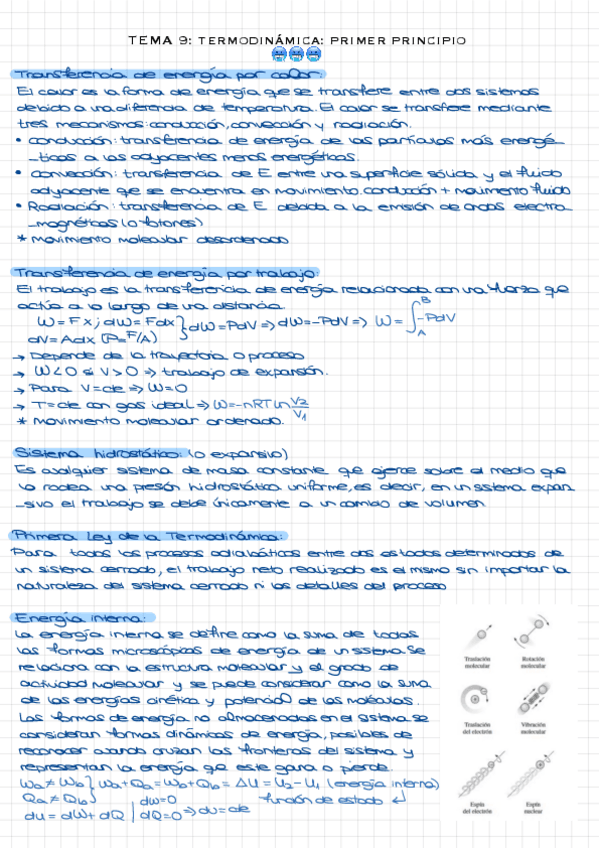 TEMA 9: TERMODINÁMICA: PRIMER PRINCIPIO
Transferencia de energía por calor:
El calor es la forma de energía que se transfiere entre dos sistemas
debido a una diferencia de temperatura. El calor se transfiere mediante
tres mecanismos: conducción, convección y radiación.
• conducción: transferencia de energía de las partículas más energé_
_ticas a las adyacentes menos energéticas.
• convección: transferencia de E entre una superficie sólida y el fluido
adyacente que se encuentra en movimiento. conducción + movimiento fluido
• Radiación: transferencia de E debida a la emisión de ondas electro_
_magnéticas (o fotones)
* movimiento molecular desordenado
Transferencia de energía por trabajo:
El trabajo es la transferencia de energía relacionada con una fuerza que
actúa a lo largo de una distancia.
W = Fx; dW = Fdx } dW = PdV => dW = -PdV => W = ∫_A^B -PdV
dV = Adx (P = F/A)
→ Depende de la trayectoria o proceso
→ W<0 si V>0 => trabajo de expansión.
→ Para V = cte => W = 0
→ T = cte con gas ideal => W = -nRT ln V2/V1
* movimiento molecular ordenado.
Sistema hidrostático: (o expansivo)
Es cualquier sistema de masa constante que ejerce sobre el medio que
lo rodea una presión hidrostática uniforme, es decir, en un sistema expan_
_sivo el trabajo se debe únicamente a un cambio de volumen.
Primera Ley de la Termodinámica:
Para todos los procesos adiabáticos entre dos estados determinados de
un sistema cerrado, el trabajo neto realizado es el mismo sin importar la
naturaleza del sistema cerrado ni los detalles del proceso
Energía interna:
La energía interna se define como la suma de todas
las formas microscópicas de energía de un sistema. Se
relaciona con la estructura molecular y el grado de
actividad molecular y se puede considerar como la suma
de las energías cinética y potencial de las moléculas.
Las formas de energía no almacenadas en el sistema se
consideran formas dinámicas de energía, posibles de
reconocer cuando cruzan las fronteras del sistema y
representan la energía que este gana o pierde.
Wa ≠ Wb } Wa + Qa = Wb + Qb = ΔU = U2 - U1 (energía interna)
Qa ≠ Qb
función de estado
dU = dW + dQ | dW = 0
dQ = 0 => dU = cte
Traslación
molecular
Rotación
molecular
Traslación
del electrón
Vibración
molecular
Espín
del electrón
Espín
nuclear